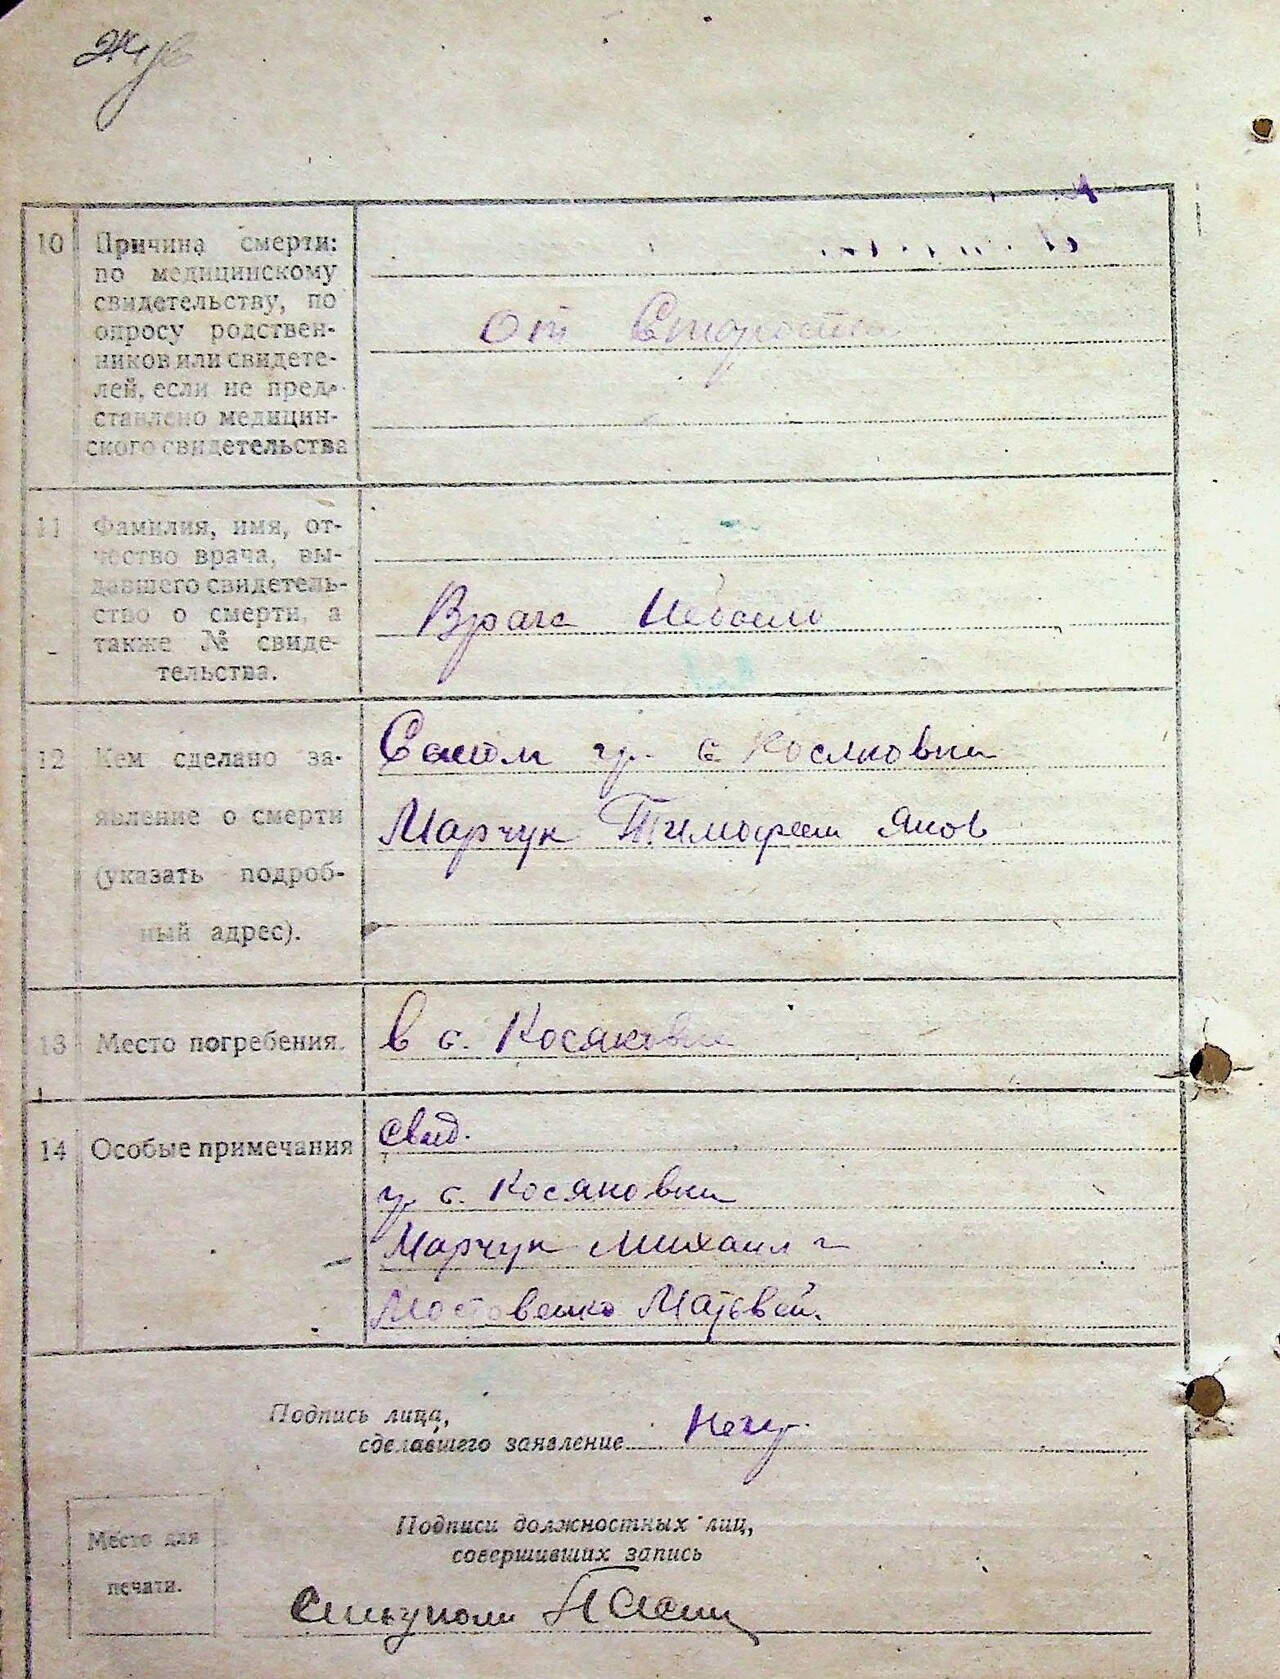 10 Причина смерти:
по медицинскому
свидетельству, по
опросу родствен-
ников или свидете-
лей, если не пред-
ставлено медицин-
ского свидетельства
От Старости
11 Фамилия, имя, от-
чество врача, вы-
давшего свидетель-
ство о смерти, а
также № свиде-
тельства.
Врача
12 Кем сделано за-
явление о смерти
(указать подроб-
ный адрес).
гр. с Косяковки
Марчук Тимофеем Яков
13 Место погребения.
в с. Косяковке
14 Особые примечания
свид.
гр. с. Косяковки
Марчук Михаил
Мостовенко Матвей.
Подпись лица,
сделавшего заявление
Подписи должностных лиц,
совершивших запись
Место для
печати.